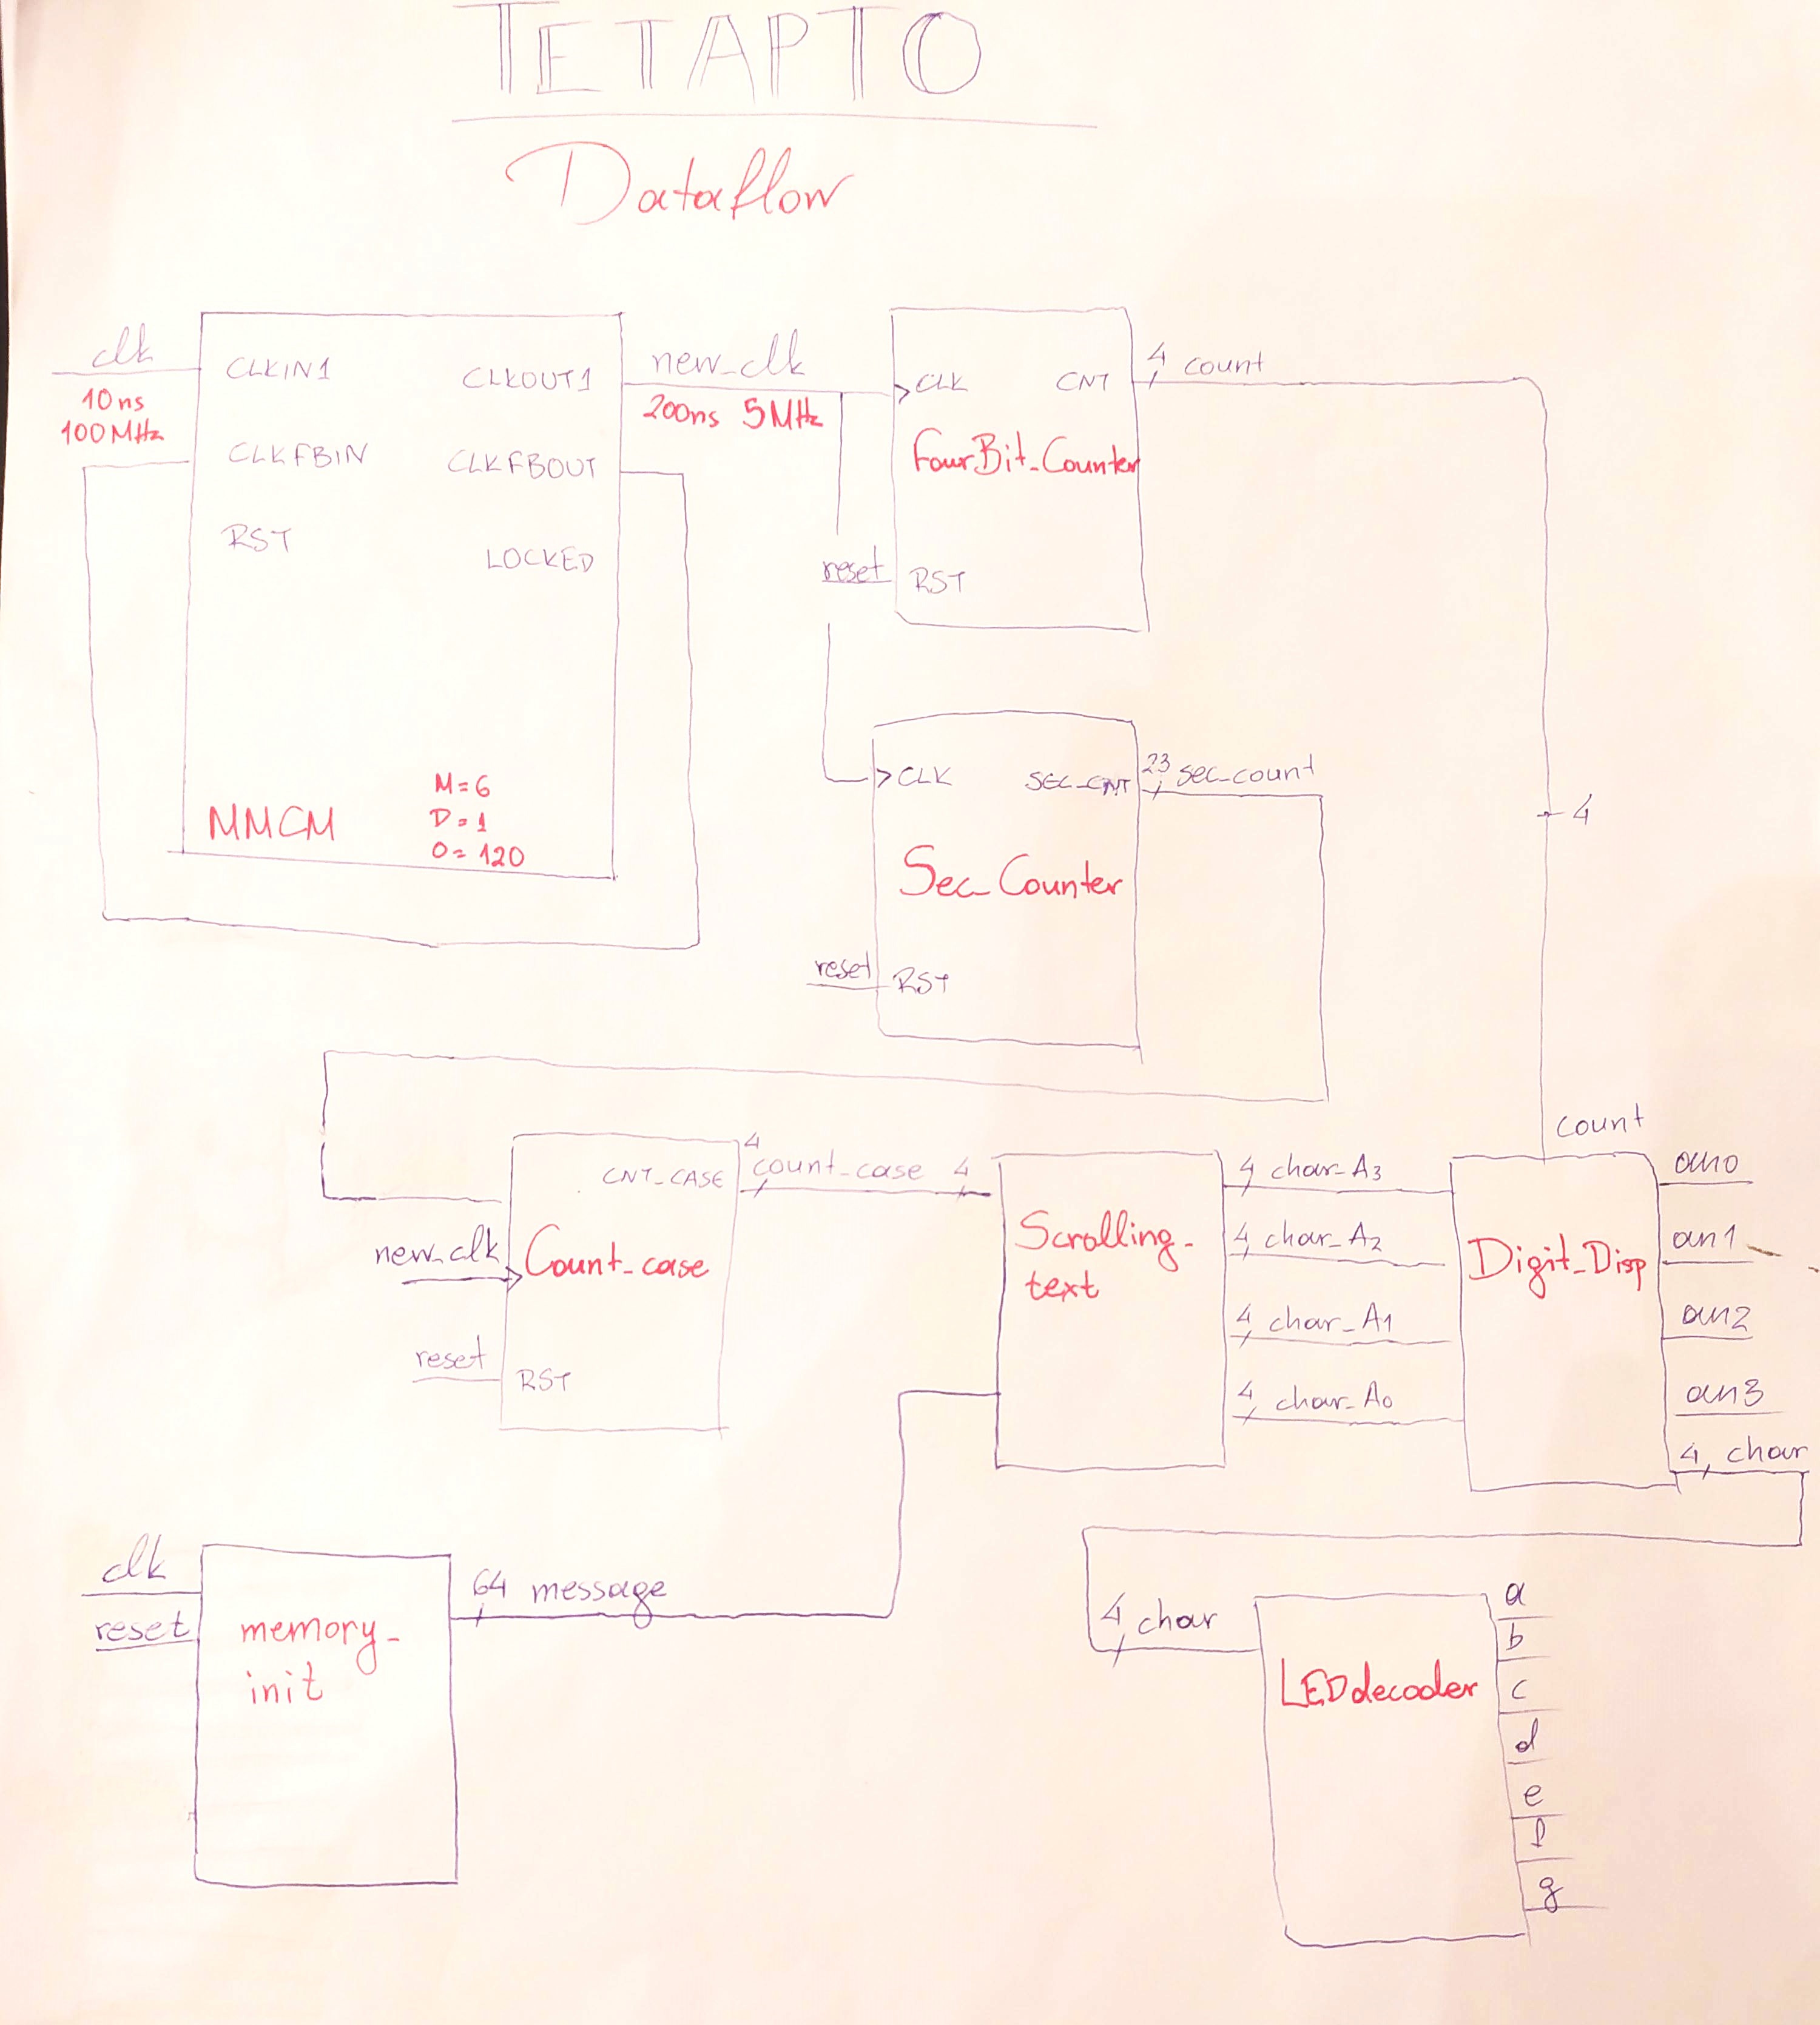 ΤΕΤΑΡΤΟ
Dataflow
clk
10ns
100MHz
CLKIN1
CLKFBIN
RST
CLKOUT1
CLKFBOUT
LOCKED
MMCM
M=6
D=1
O=120
new_clk
200ns 5MHz
CLK
CNT
FourBit_Counter
reset
RST
4 count
4
CLK
SEC_CNT
Sec_Counter
reset
RST
23 sec_count
CNT_CASE
new_clk
Count_case
reset
RST
4
count_case 4
Scrolling_
text
4 char_A3
4 char_A2
4 char_A1
4 char_A0
count
Digit_Disp
an0
an1
an2
an3
4, char
clk
reset
memory_
init
64 message
4 char
LEDdecoder
a
b
c
d
e
f
g